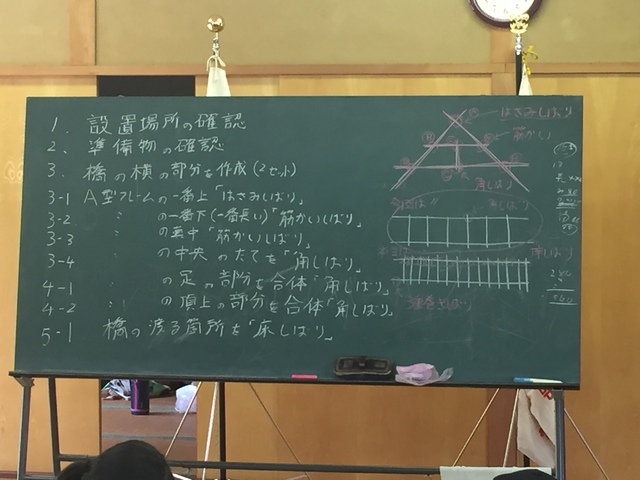 1. 設置場所の確認
2. 準備物の確認
3. 橋の横の部分を作成(2セット)
3-1 A型フレームの一番上「はさみしばり」
3-2 〃 の一番下(一番長い)「筋かいしばり」
3-3 〃 の真中「筋かいしばり」
3-4 〃 の中央のたてを「角しばり」
4-1 〃 の足の部分を合体「角しばり」
4-2 〃 の頂上の部分を合体「角しばり」
5-1 橋の渡る箇所を「床しばり」
はさみしばり
筋かい
角しばり
角しばり
床しばり